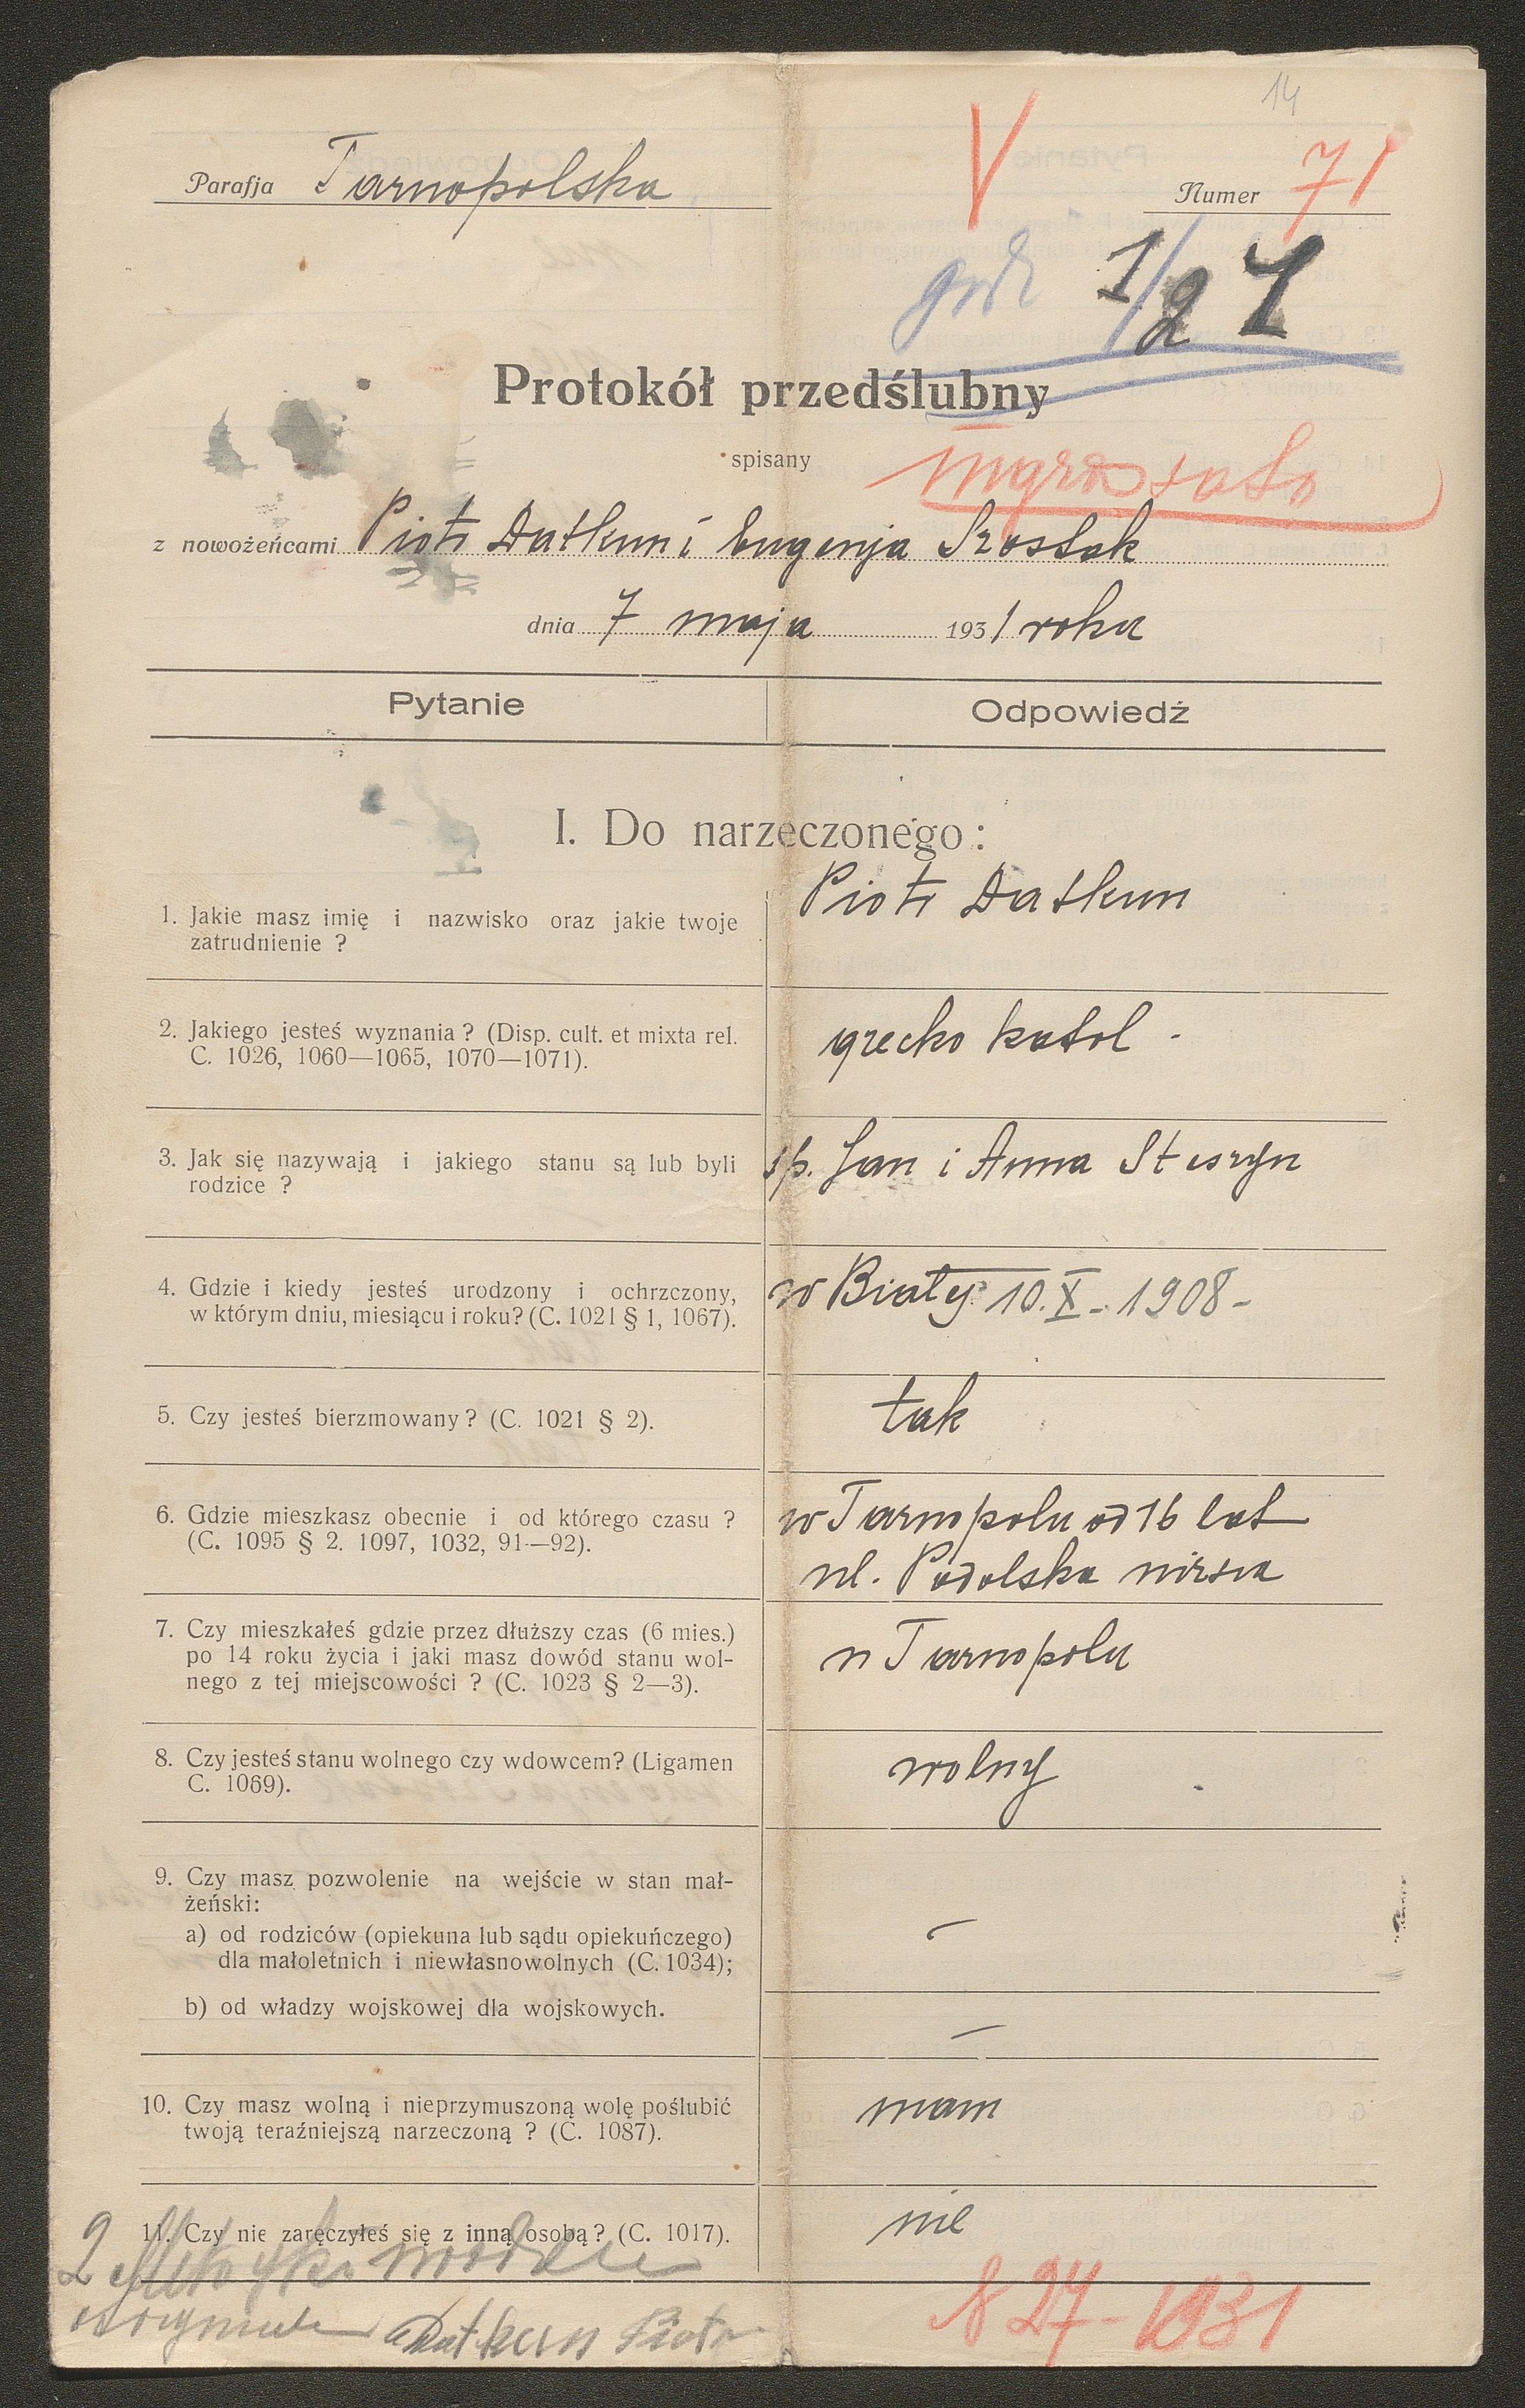 14
Parafja Tarnopolska
V
Numer 71
godz 1/2 7
Protokół przedślubny
spisany
z nowożeńcami Piotr Datkun i Eugenja Szostak
dnia 7 maja 1931 roku
Pytanie
Odpowiedź
I. Do narzeczonego:
1. Jakie masz imię i nazwisko oraz jakie twoje
zatrudnienie ?
Piotr Datkun
2. Jakiego jesteś wyznania ? (Disp. cult. et mixta rel.
C. 1026, 1060—1065, 1070—1071).
grecko katol -
3. Jak się nazywają i jakiego stanu są lub byli
rodzice ?
śp. Jan i Anna
4. Gdzie i kiedy jesteś urodzony i ochrzczony,
w którym dniu, miesiącu i roku? (C. 1021 § 1, 1067).
w Białej 10. X - 1908 -
5. Czy jesteś bierzmowany ? (C. 1021 § 2).
tak
6. Gdzie mieszkasz obecnie i od którego czasu ?
(C. 1095 § 2. 1097, 1032, 91—92).
w Tarnopolu od 16 lat
ul. Podolska niższa
7. Czy mieszkałeś gdzie przez dłuższy czas (6 mies.)
po 14 roku życia i jaki masz dowód stanu wol-
nego z tej miejscowości ? (C. 1023 § 2—3).
w Tarnopolu
8. Czy jesteś stanu wolnego czy wdowcem? (Ligamen
C. 1069).
wolny
9. Czy masz pozwolenie na wejście w stan mał-
żeński:
a) od rodziców (opiekuna lub sądu opiekuńczego)
dla małoletnich i niewłasnowolnych (C. 1034);
-
b) od władzy wojskowej dla wojskowych.
-
10. Czy masz wolną i nieprzymuszoną wolę poślubić
twoją teraźniejszą narzeczoną ? (C. 1087).
mam
11. Czy nie zaręczyłeś się z inną osobą ? (C. 1017).
nie
2 Metryki
Datkun Piotr
N 27 - 1931